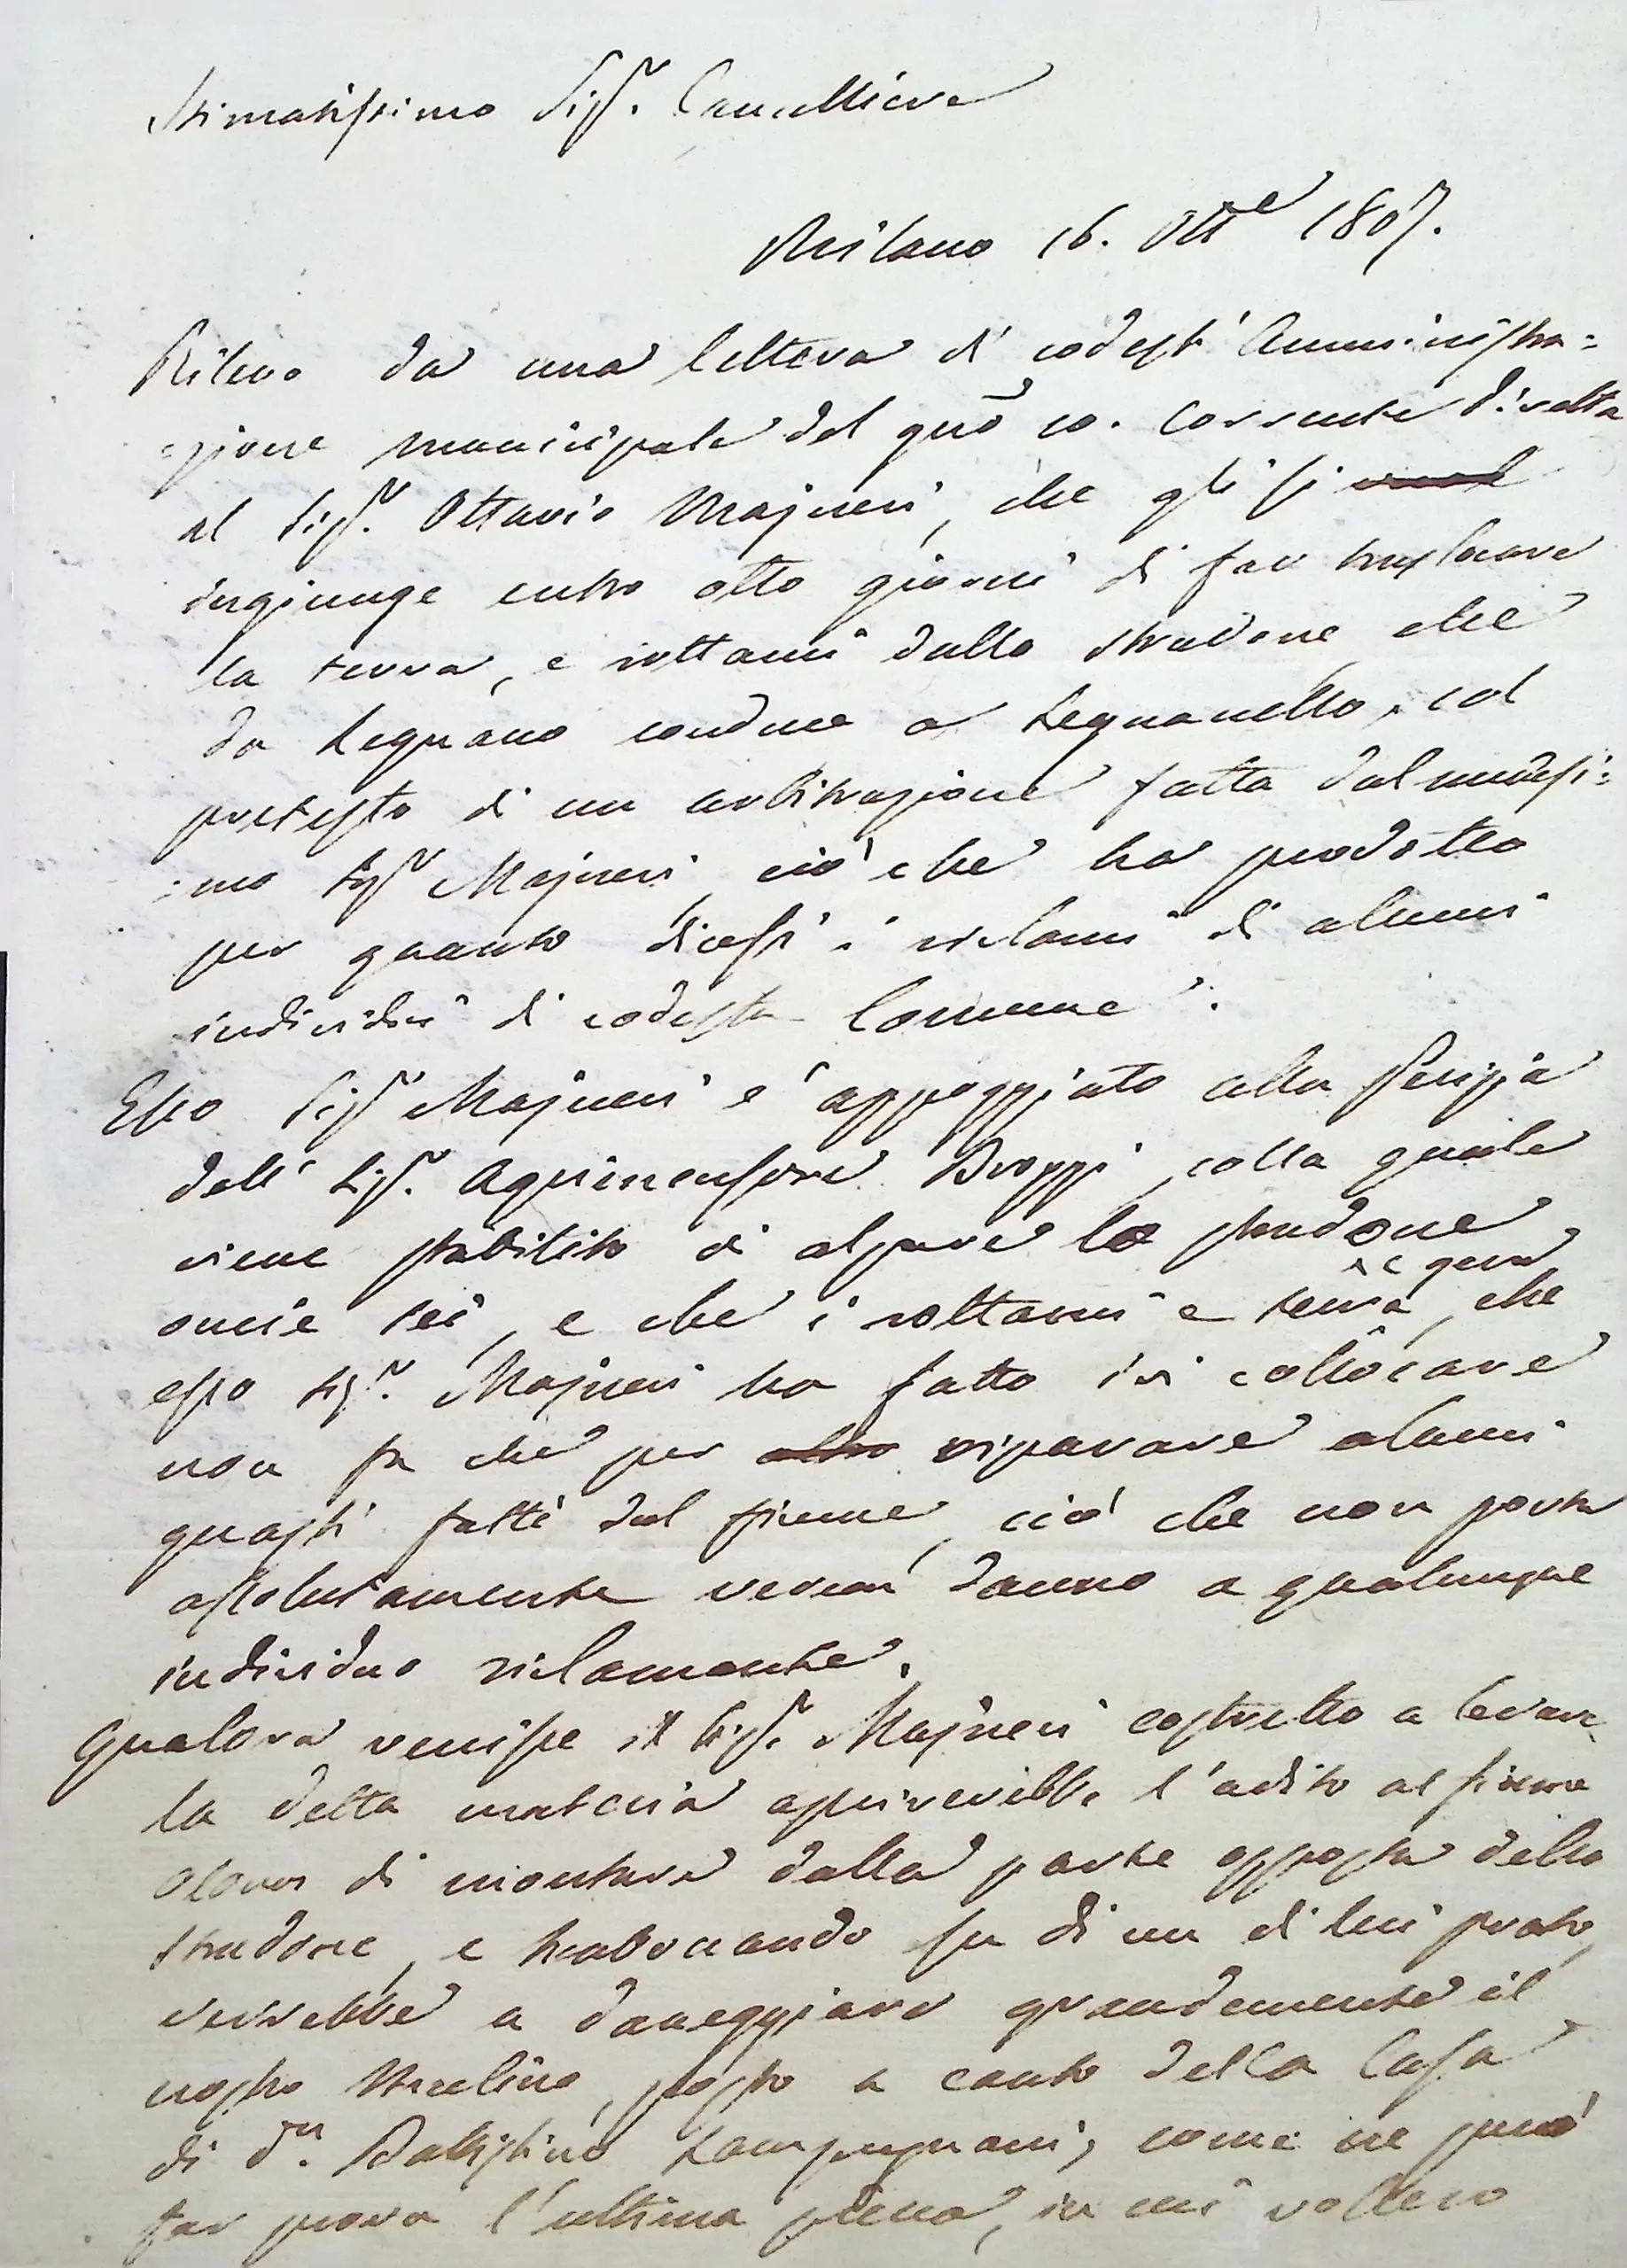 Stimatissimo Sig.r Cancelliere
Milano 16. Ott.e 1807.
Rilevo da una lettera di codest' Amministra=
=zione municipale del gno 10. corrente diretta
al Sig.r Ottavio Majneri, che gli si
ingiunge entro otto giorni di far traslocare
la terra, e rottami dallo stradone che
da Legnano conduce a Legnanello, col
pretesto di un arbitrazione fatta dal medesi=
=mo Sig.r Majneri, ciò che ha prodotto
per quanto dicesi i reclami di alcuni
individui di codesta Comune.
Esso Sig.r Majneri è appoggiato alla Perizia
dell' Sig.r Agrimensore Broggi, colla quale
viene stabilito di alzare lo stradone
oncie sei, e che i rottami e terra, che
esso Sig.r Majneri ha fatto ivi collocare
non fu che per riparare alcuni
guasti fatti dal fiume, ciò che non porta
assolutamente verun danno a qualunque
individuo reclamante.
Qualora venisse il Sig.r Majneri costretto a levare
la detta materia aprirerebbe l'adito al fiume
Olona di montare dalla parte opposta dello
stradone, e traboccando su di un di lui prato,
verrebbe a daneggiare grandemente il
nostro Mulino, posto a canto della Casa
di D.n Battistino Lampugnani, come ne può
far prova l'ultima piena, in cui vollero